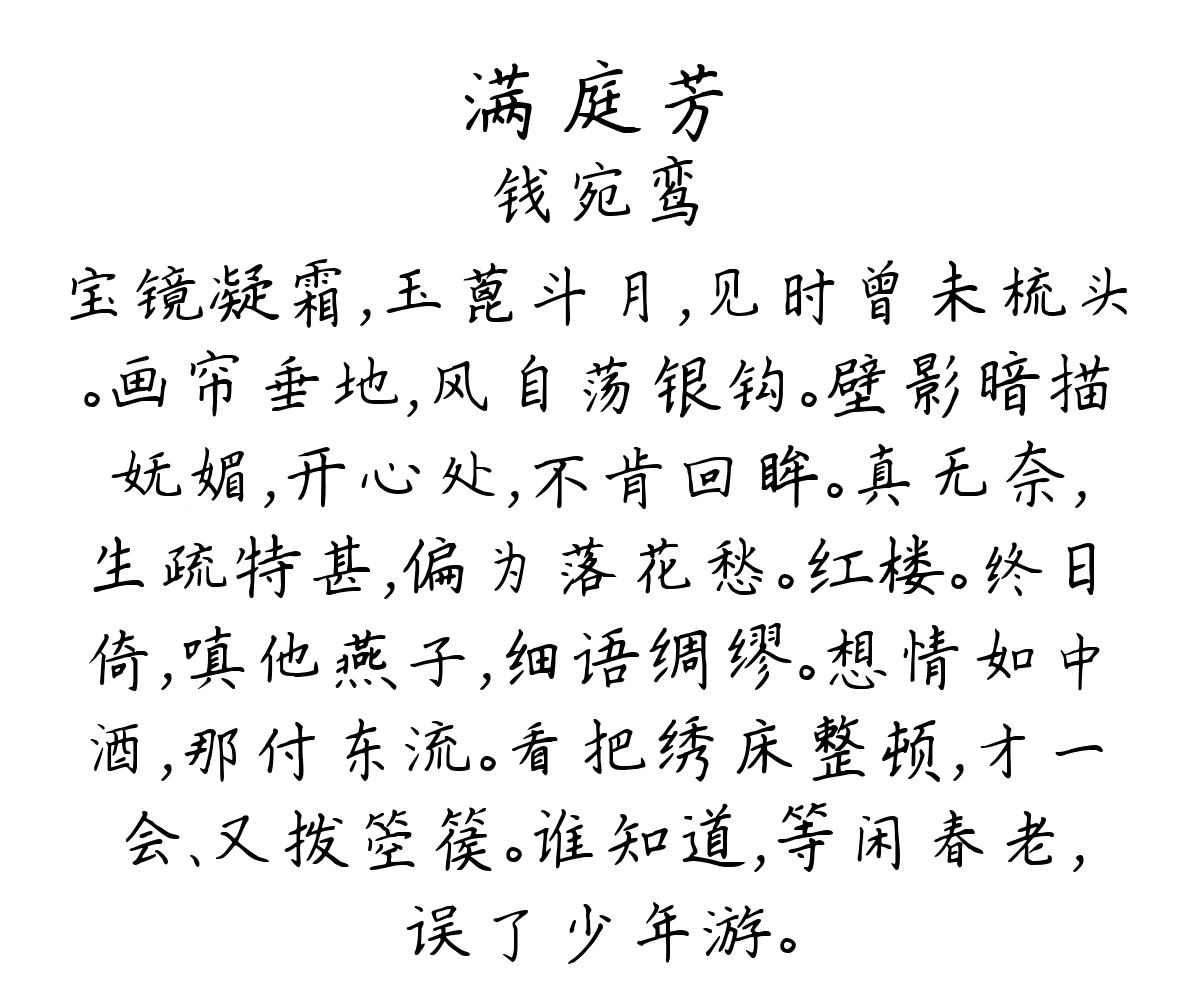 满庭芳
钱宛鸾
宝镜凝霜,玉蓖斗月,见时曾未梳头
。画帘垂地,风自荡银钩。壁影暗描
妩媚,开心处,不肯回眸。真无奈,
生疏特甚,偏为落花愁。红楼。终日
倚,嗔他燕子,细语绸缪。想情如中
酒,那付东流。看把绣床整顿,才一
会、又拨箜篌。谁知道,等闲春老,
误了少年游。